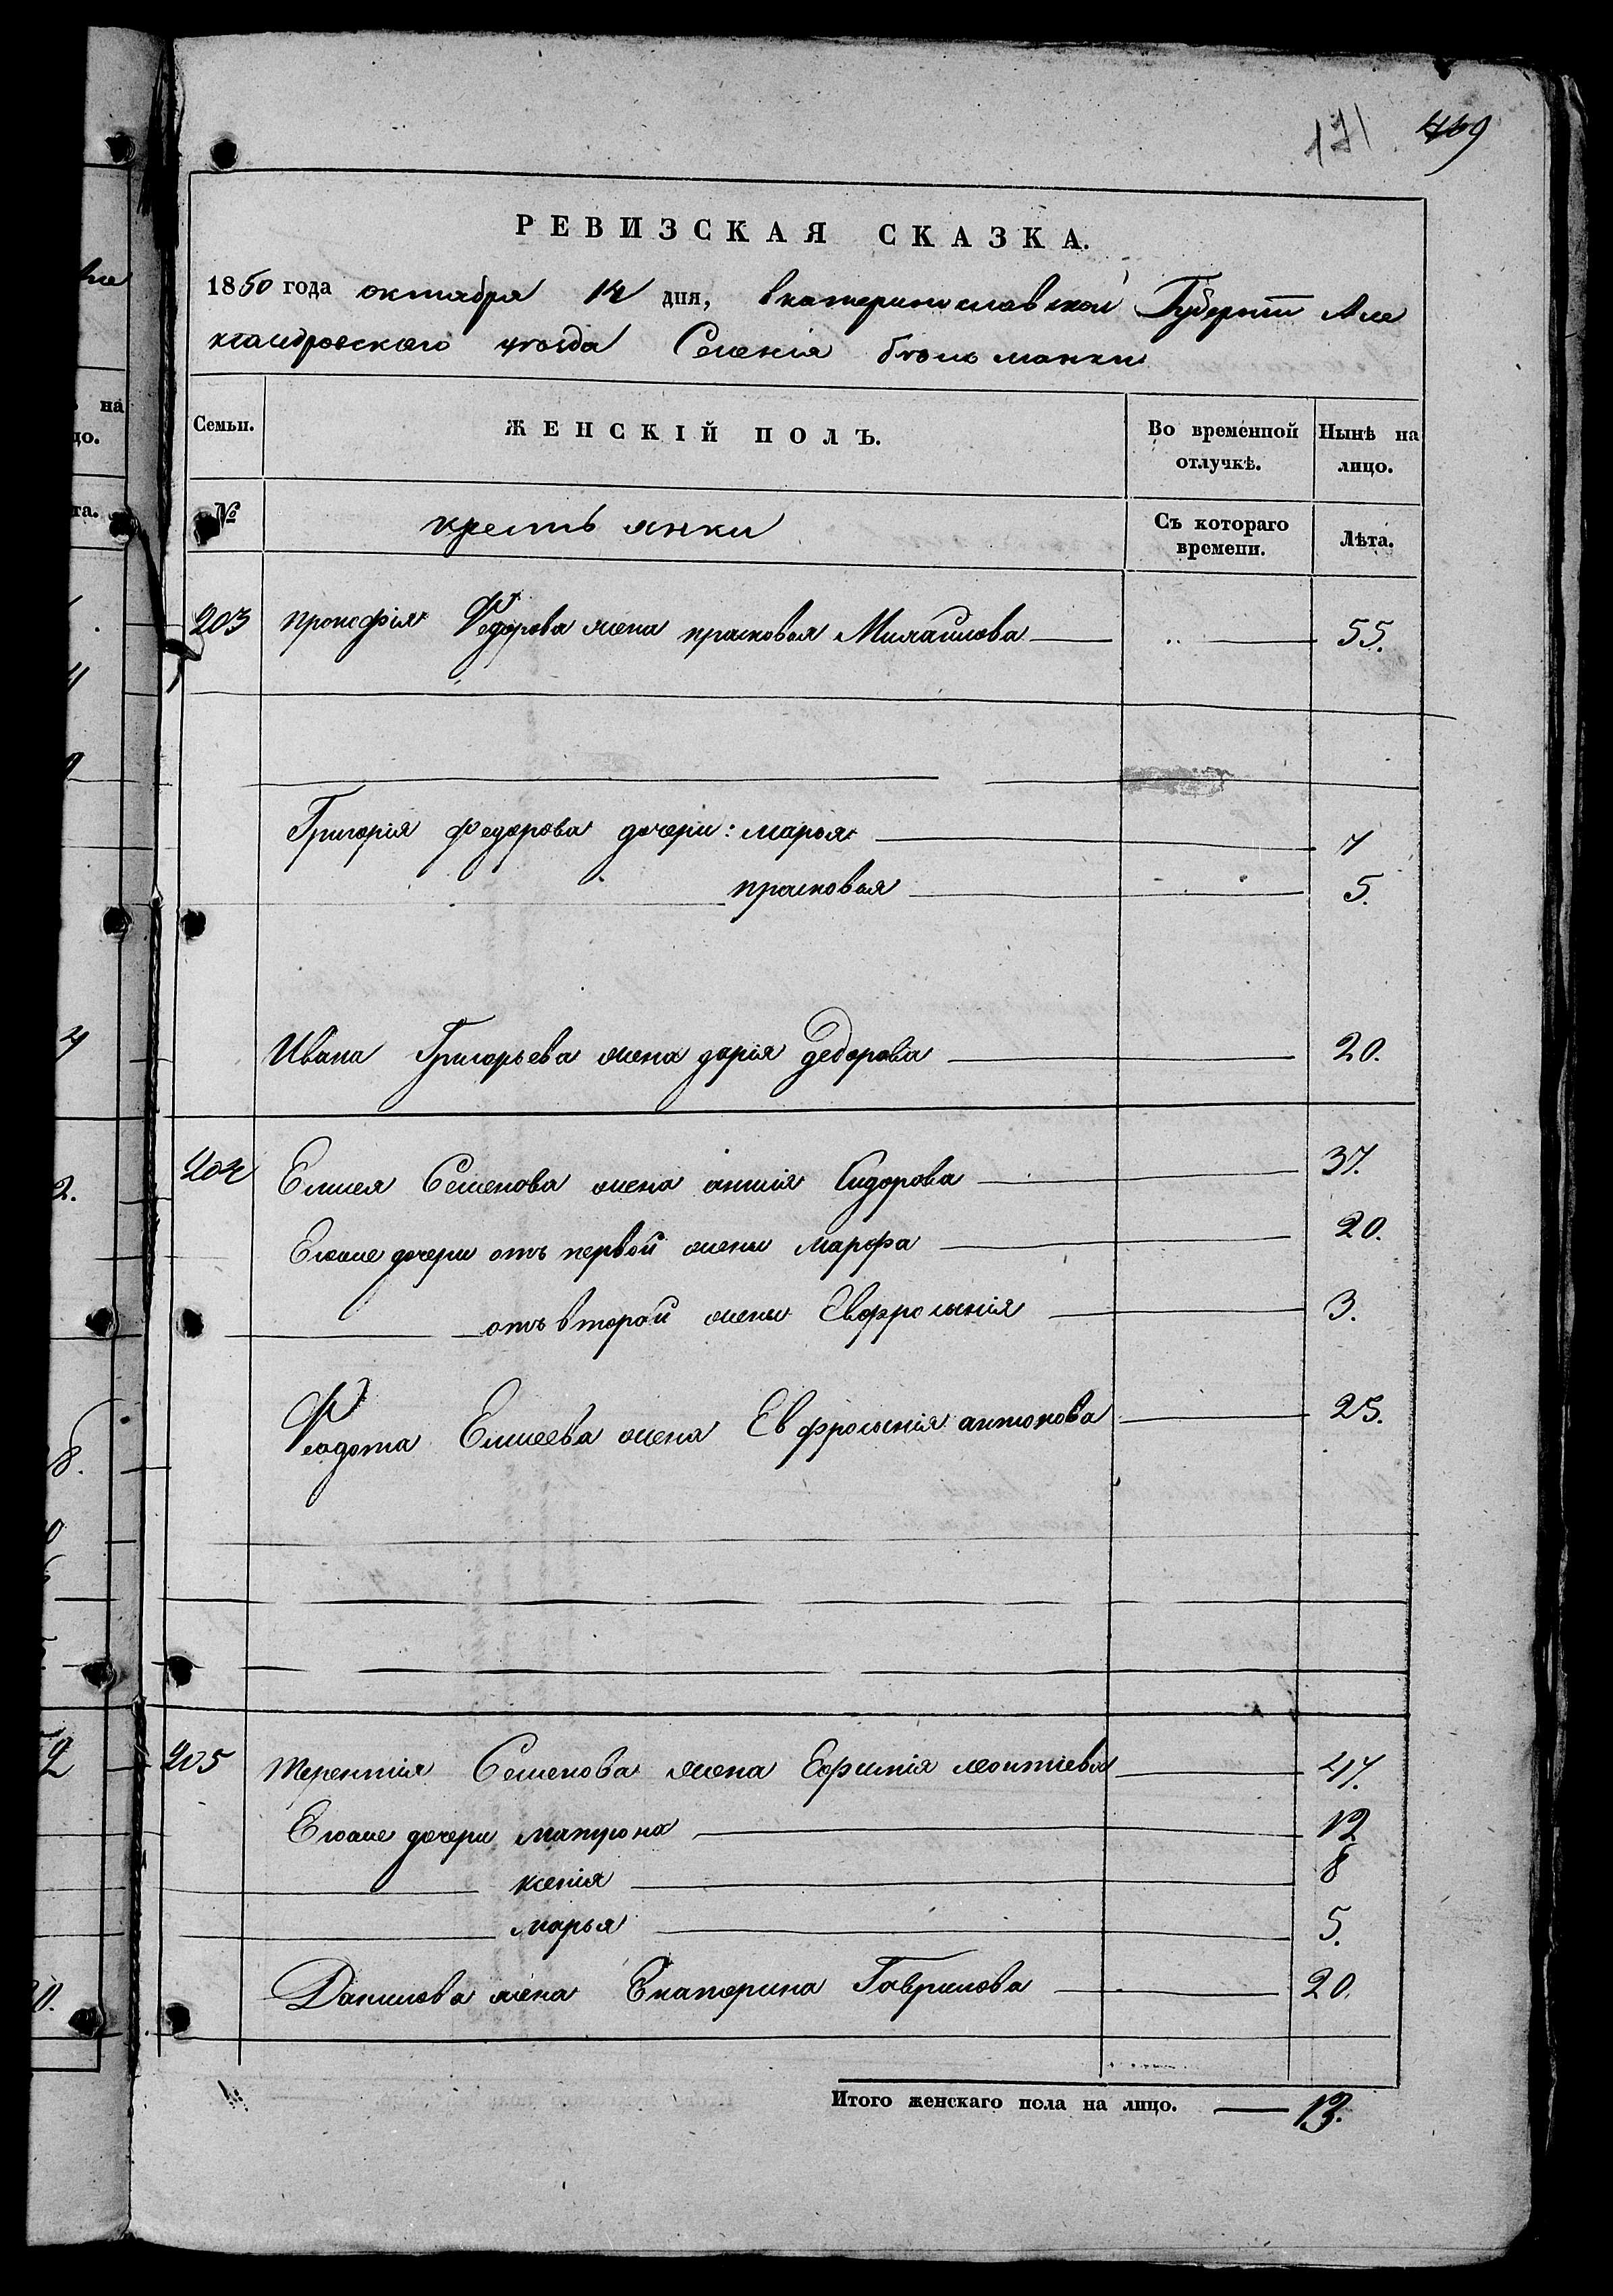 171 469
РЕВИЗСКАЯ СКАЗКА.
1850 года октября 14 дня, Екатеринославской Губернии Але
ксандровского уѣзда Селенія бѣльманки
Семьи.
ЖЕНСКІЙ ПОЛЪ.
Во временной отлучкѣ.
Нынѣ на лицо.
№
крестьянки
Съ котораго времени.
Лѣта.
203 прокофія Федорова жена прасковья Михайлова 55.
Григорія федорова дочери: марья 7
прасковья 5.
Ивана Григорьева жена дарія Федорова 20.
204 Елисея Семенова жена анисія Сидорова 37.
Егоже дочери отъ первой жены Марфа 20.
отъ второй жены Евфросынія 3.
Феодота Елисеева жена Евфросынія антонова 25.
205 терентія Семенова жена Ефимія леонтіева 47.
Егоже дочери матрона 12
ксенія 8
марья 5.
Данилова жена Екатерина Гаврилова 20.
Итого женскаго пола на лицо. 13.